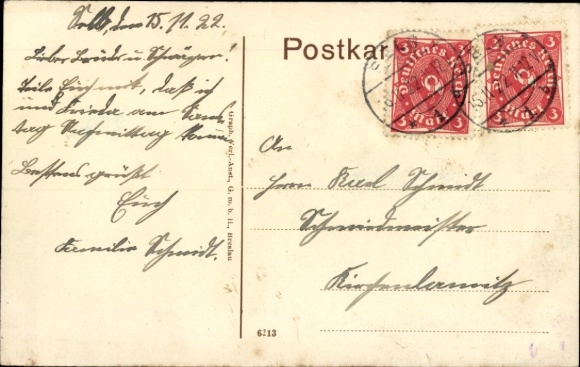 Selb, den 15.11.22.
Lieber Bruder u. Schwägerin!
Teile Euch mit, daß ich
und Frieda am Sams-
tag Nachmittag komme
Bestens grüßt
Euch
Familie Schmidt.
Postkar
Deutsches Reich
3 3
Mark
Deutsches Reich
3 3
Mark
An
Herrn Karl Schmidt
Schmiedmeister
Kirchenlamitz
Graph. Verl.-Anst., G. m. b. H., Breslau
6213